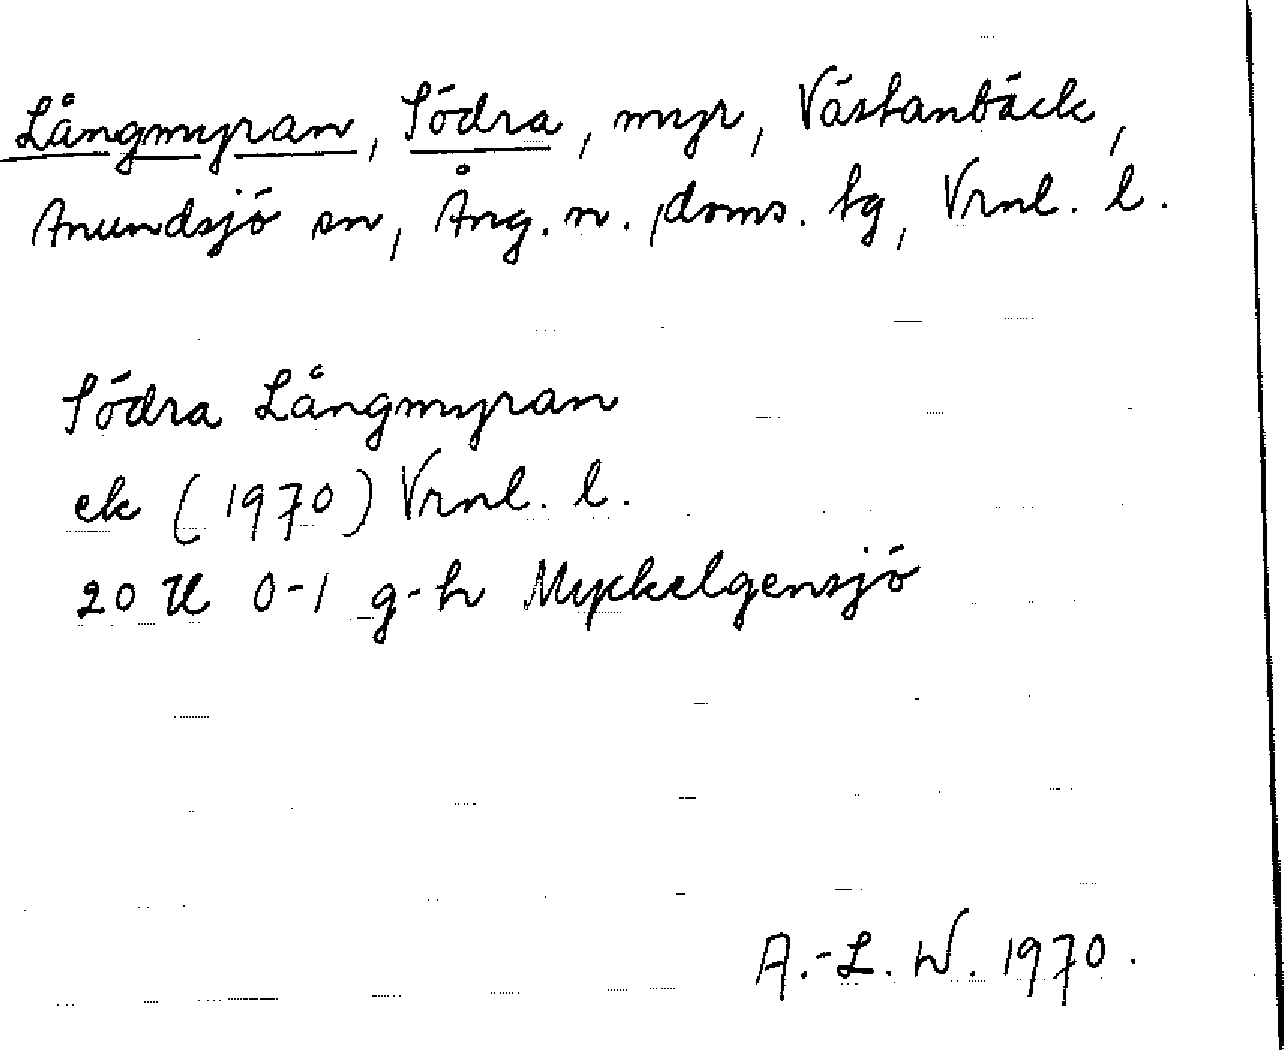 Långmyran, Södra, myr, Västanbäck,
Anundsjö sn, Ång. n. doms. tg, Vrnl. l.
Södra Långmyran
ek (1970) Vrnl. l.
20 H 0-1 g-h Myckelgensjö
A.-L. W. 1970.